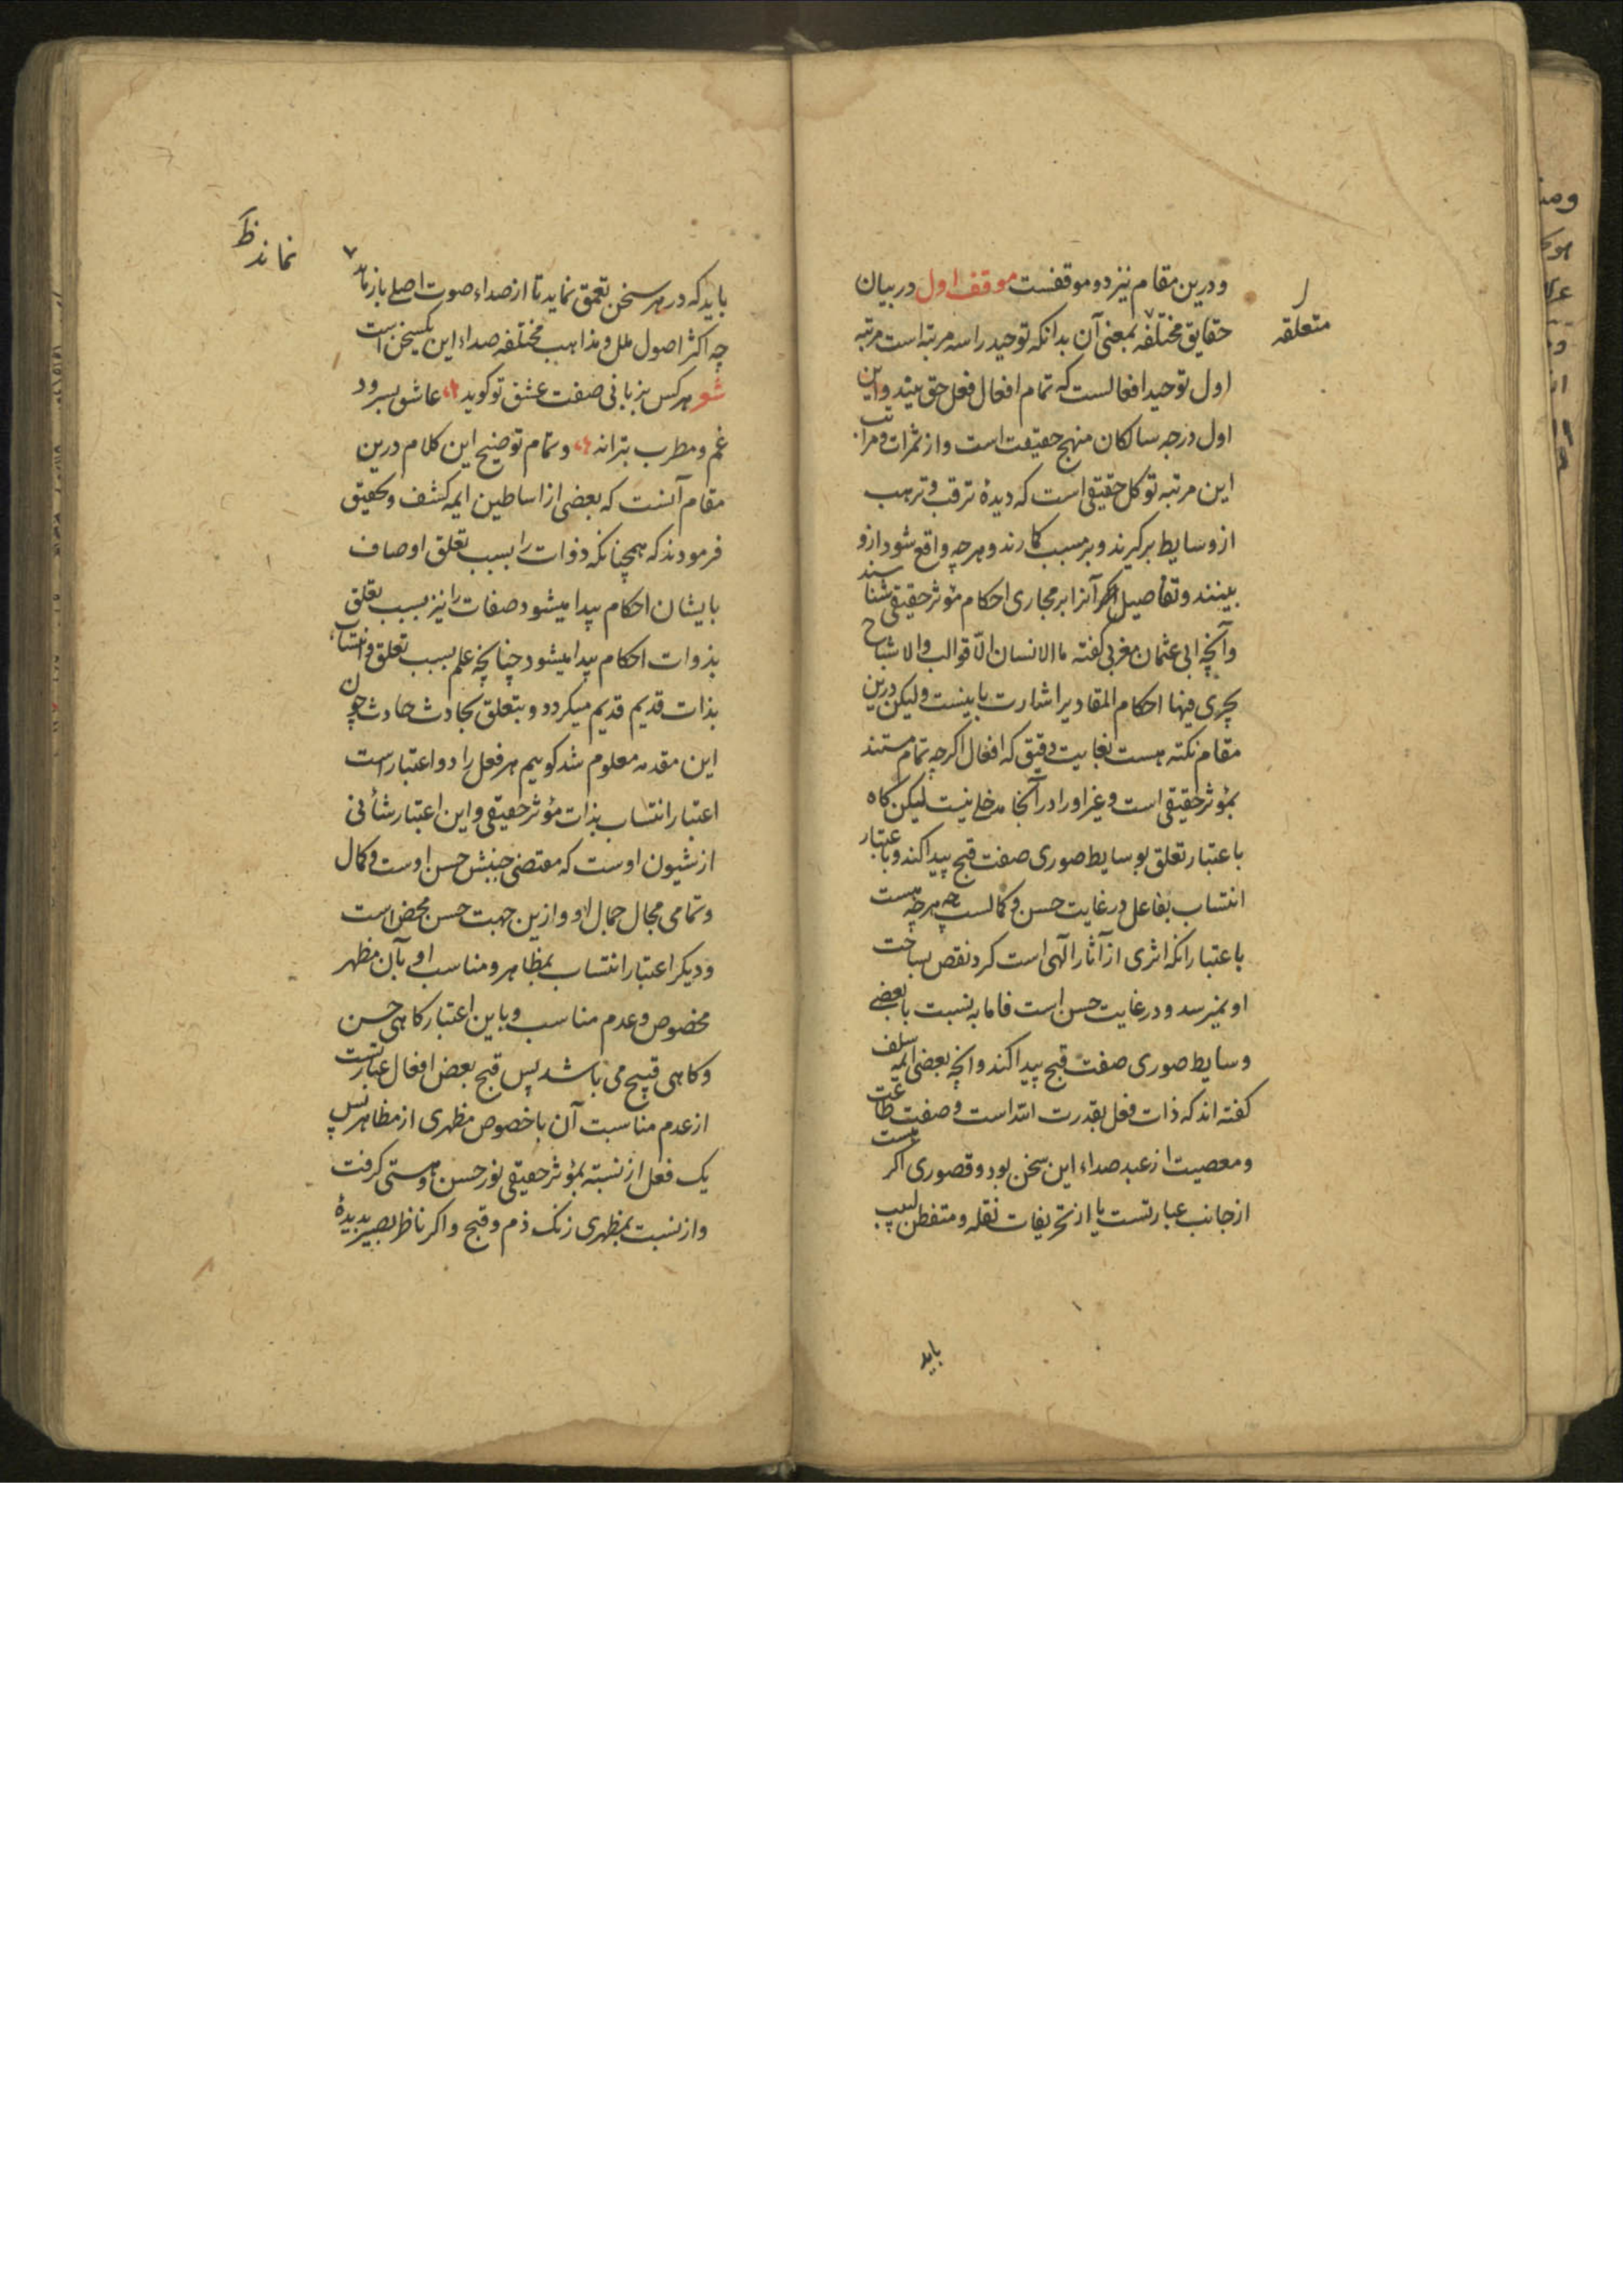 ودرین مقام نیز دو موقفست موقف اول در بیان
متعلقه
حقایق مختلفه بمعنی آن بدانکه توحید را سه مرتبه است مرتبه
اول توحید افعالست که تمام افعال فعل حق بیند و این
اول درجه سالکان منهج حقیقت است و از ثمرات و مراتب
این مرتبه توکل حقیقی است که دیدهٔ ترقب و ترهب
از وسایط برکیرند و بر مسبب کارند و هرچه واقع شود ازو
بینند و تفاصیل آنرا بر مجاری احکام مؤثر حقیقی شناسند
و آنچه ابی عثمان مغربی کفته ما الانسان الّا قوالب والاشباح
یجری فیها احکام المقادیر اشارت باینست ولیکن درین
مقام نکته هست بغایت دقیق که افعال اکرچه تمام مستند
بمؤثر حقیقی است و غیر او را در آنجا مدخلی نیست لیکن کاه
باعتبار تعلق بوسایط صوری صفت قبح پیدا کند و باعتبار
انتساب بفاعل در غایت حسن و کمالست چه هرچه هست
باعتبار انکه اثری از آثار الهی است کرد نقص بساحت
او نمیرسد و در غایت حسن است فاما به نسبت با بعضی
وسایط صوری صفت قبح پیدا کند و انچه بعضی ایمه سلف
کفته اند که ذات فعل بقدرت الله است و صفت طاعت
و معصیت از عبد صداء این سخن بود و قصوری اکر هست
از جانب عبارتست یا از تحریفات نقله و متفطن لبیب
باید
باید که در هر سخن تعمق نماید تا از صداء صوت اصلی باز
نماند ظ
چه اکثر اصول ملل و مذاهب مختلفه صداء این یکسخن است
شعر هرکس بزبانی صفت عشق تو کوید عاشق بسرود
غم و مطرب بترانه و تمام توضیح این کلام درین
مقام آنست که بعضی از اساطین ایمه کشف و تحقیق
فرمودند که همچنانکه ذوات را بسبب تعلق اوصاف
بایشان احکام پیدا میشود صفات را نیز بسبب تعلق
بذوات احکام پیدا میشود چنانچه علم بسبب تعلق و انتساب
بذات قدیم قدیم میکردد و بتعلق بحادث حادث چون
این مقدمه معلوم شد کوییم هر فعل را دو اعتبار است
اعتبار انتساب بذات مؤثر حقیقی و این اعتبار شأنی
از شیون اوست که مقتضی جنبش حسن اوست و کمال
و تمامی مجال جمال او و ازین جهت حسن محض است
و دیکر اعتبار انتساب بمظاهر و مناسب او بآن مظهر
مخصوص و عدم مناسب و باین اعتبار کاهی حسن
و کاهی قبیح می باشد پس قبح بعض افعال عبارتست
از عدم مناسبت آن باخصوص مظهری از مظاهر پس
یک فعل از نسبته بمؤثر حقیقی نور حسن و هستی کرفت
و از نسبت بمظهری زنک ذم و قبح و اکر ناظر بصیر بدیدهٔ